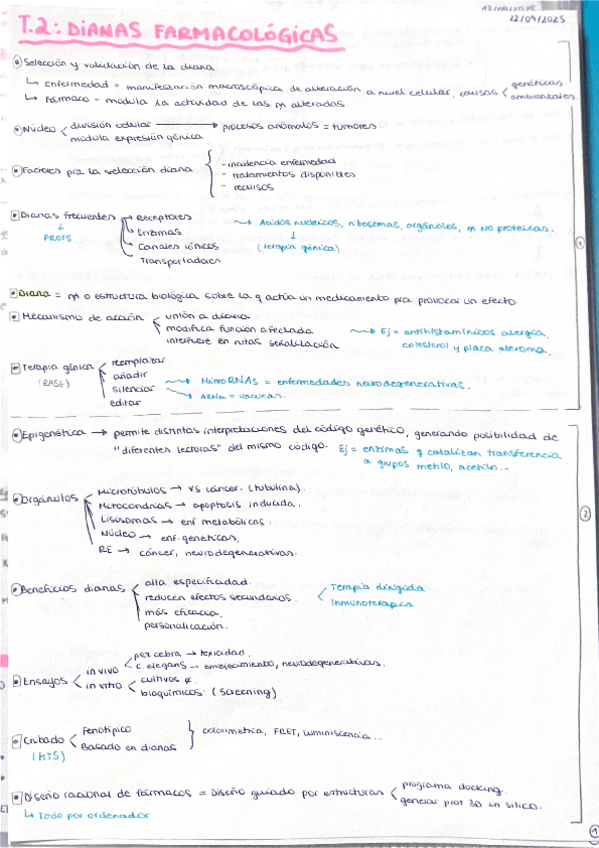 22/09/2025
T.2: DIANAS FARMACOLÓGICAS
Selección y validación de la diana
↳ enfermedad = manifestación macroscópica de alteración a nivel celular, causas < genéticas
ambientales
↳ fármaco - modula la actividad de las m alteradas
Núcleo < división celular → procesos anómalos = tumores
modula expresión génica
Factores pra la selección diana { - incidencia enfermedad
- tratamientos disponibles
- recursos
Dianas frecuentes → Receptores
↓
PROTS
Enzimas
Canales iónicos
Transportadores
Ácidos nucleicos, ribosomas, orgánulos, m NO proteicas.
↓
(terapia génica)
1
Diana = m o estructura biológica sobre la q actúa un medicamento pra provocar un efecto
Mecanismo de acción < unión a diana
modifica función afectada
interfiere en rutas señalización
Ej = antihistamínicos alergia,
colesterol y placa ateroma,
Terapia génica < reemplazar
(BASE)
añadir
silenciar → MicroRNAs = enfermedades neurodegenerativas.
editar → ARNm = vacunas.
Epigenética → permite distintas interpretaciones del código genético, generando posibilidad de
"diferentes lecturas" del mismo código. Ej = enzimas q catalizan transferencia
a grupos metilo, acetilo...
Orgánulos < Microtúbulos → vs cáncer. (tubulina).
Mitocondrias → apoptosis inducida.
Lisosomas → enf metabólicas.
Núcleo → enf. genéticas,
RE → cáncer, neurodegenerativas.
2
Beneficios dianas < alta especificidad.
reducen efectos secundarios.
más eficacia.
personalización.
< Terapia dirigida
Inmunoterapia
Ensayos < in vivo < pez cebra → toxicidad.
C. elegans → envejecimiento, neurodegenerativas.
in vitro < cultivos
bioquímicos (screening)
Cribado < Fenotípico
(HTS)
Basado en dianas } colorimetría, FRET, luminiscencia...
Diseño racional de fármacos = Diseño guiado por estructuras < programa docking.
generar prot 3D in silico.
↳ Todo por ordenador
1